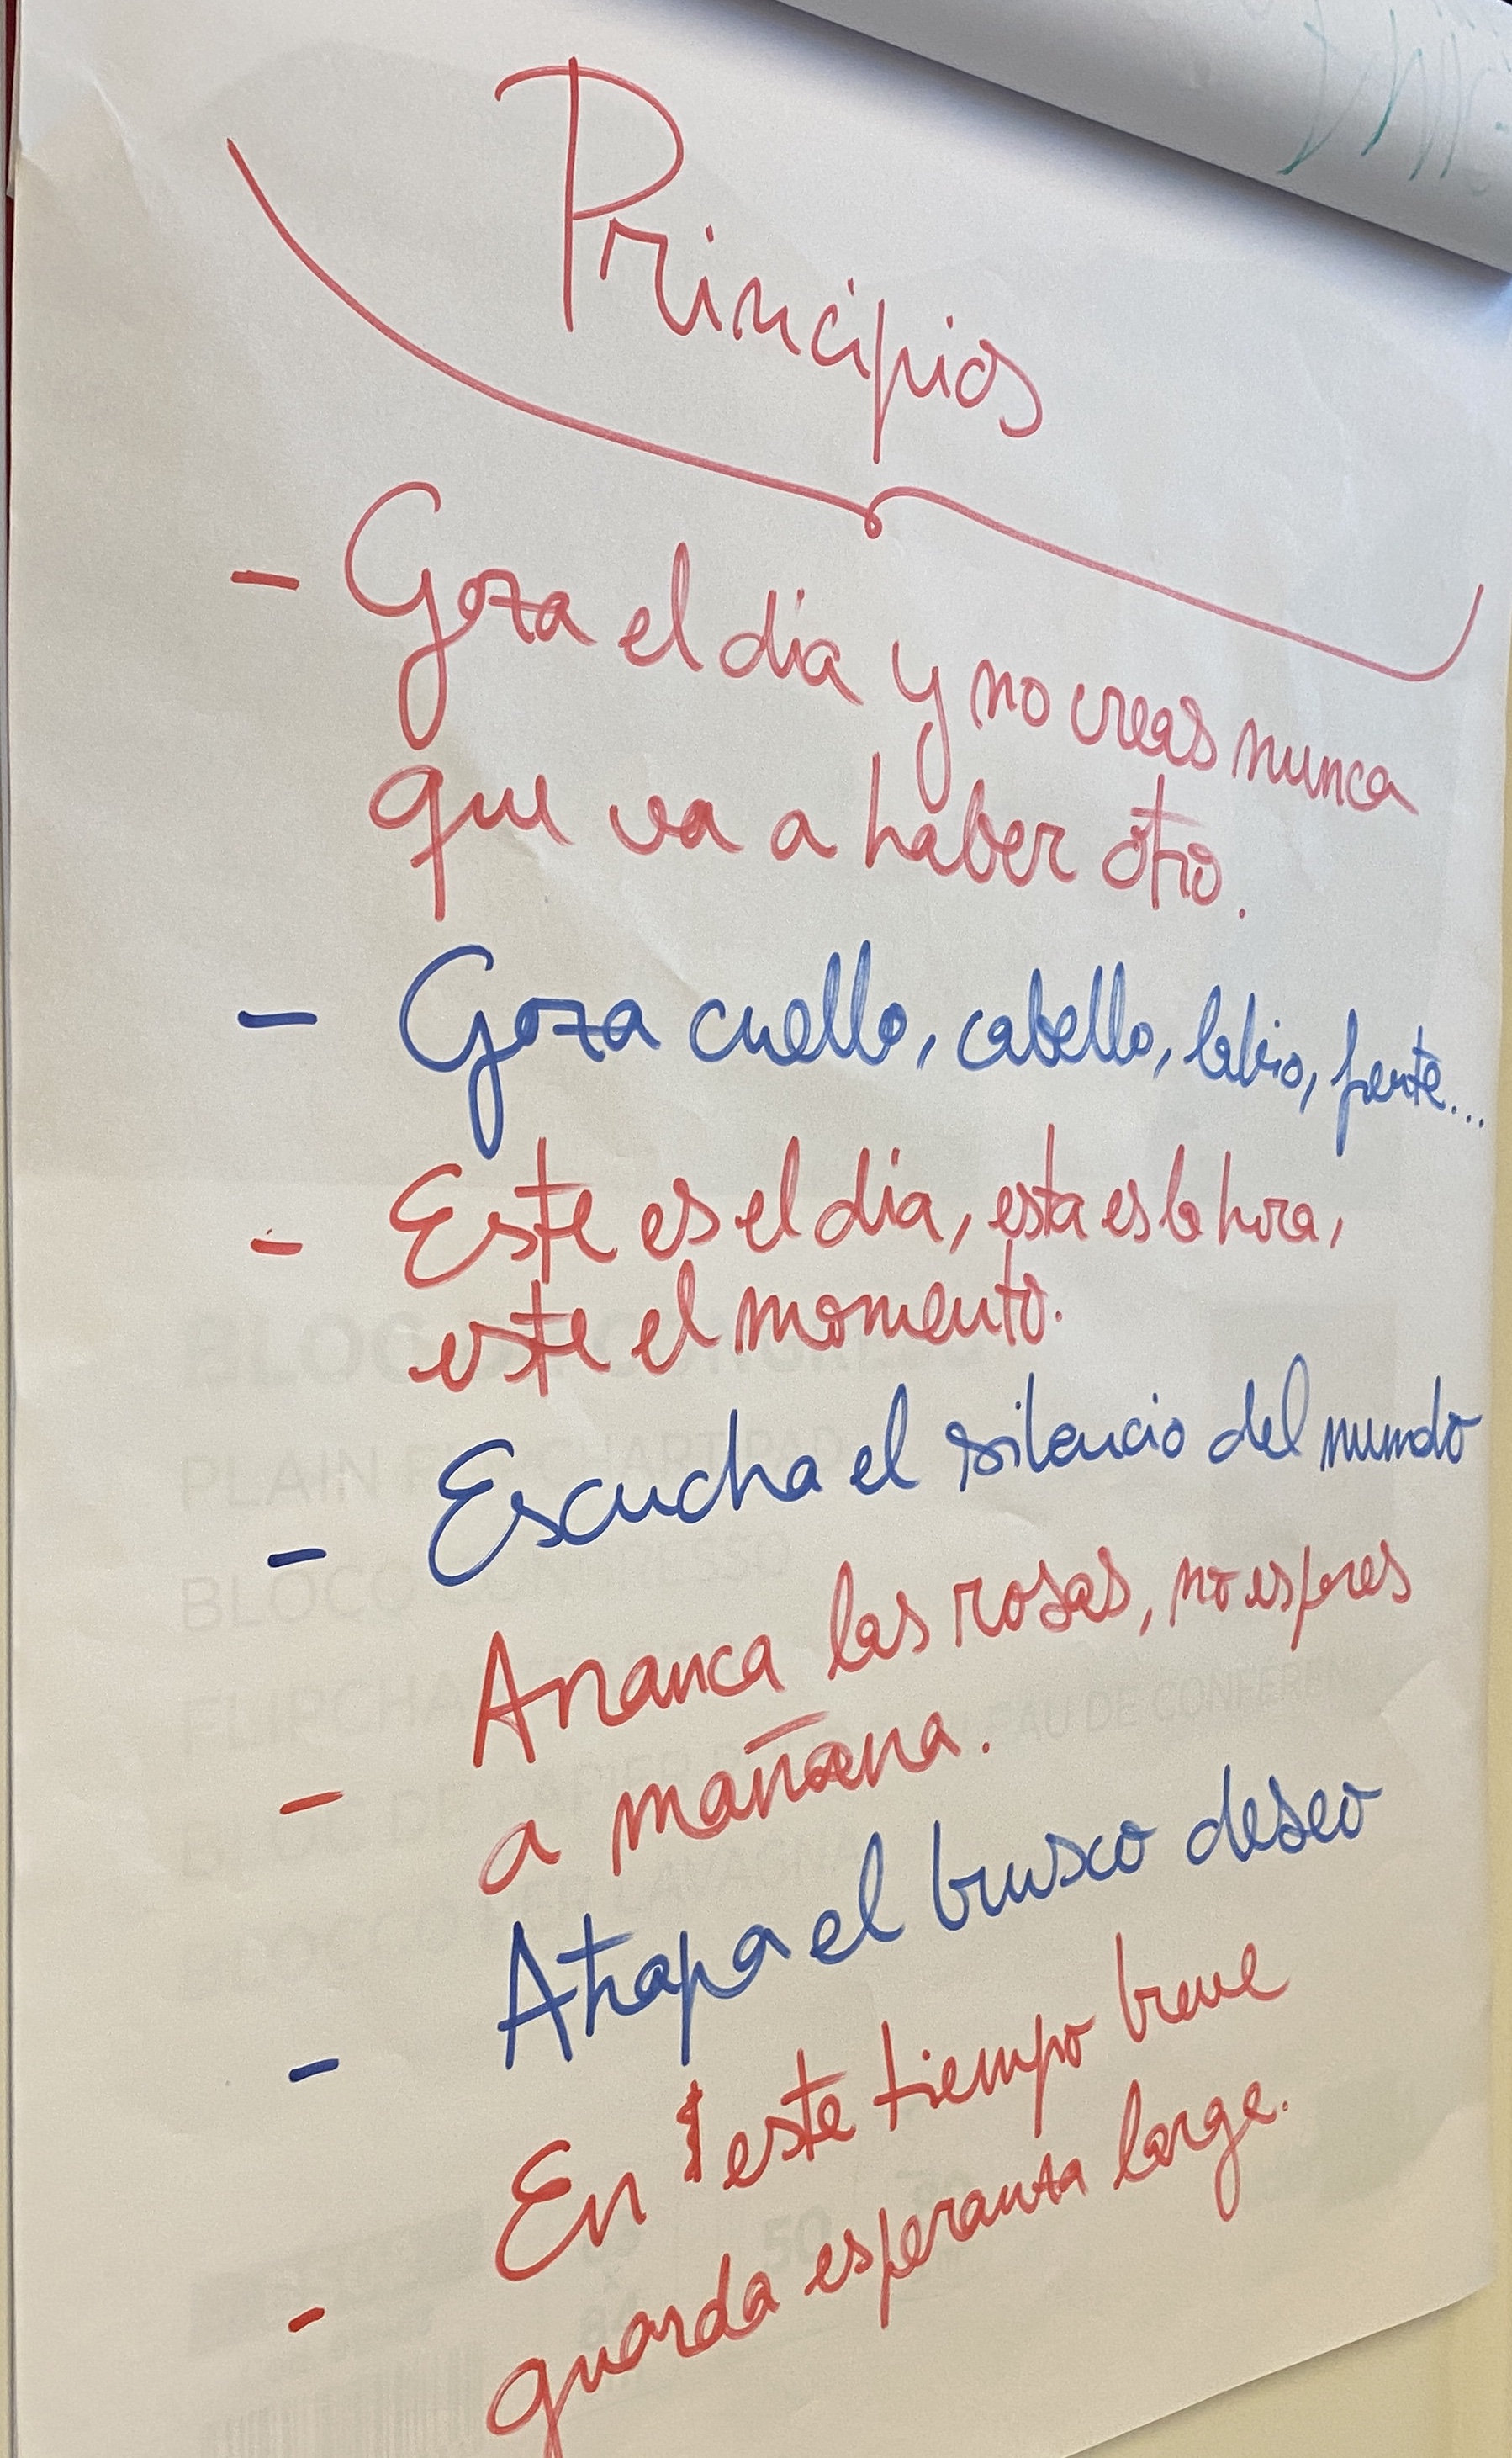 Principios
- Goza el dia y no creas nunca
que va a haber otro.
- Goza cuello, cabello, labio, frente...
- Este es el dia, esta es la hora,
este el momento.
- Escucha el silencio del mundo
- Arranca las rosas, no esperes
a mañana.
- Atrapa el brusco deseo
- En este tiempo breve
guarda esperanza larga.